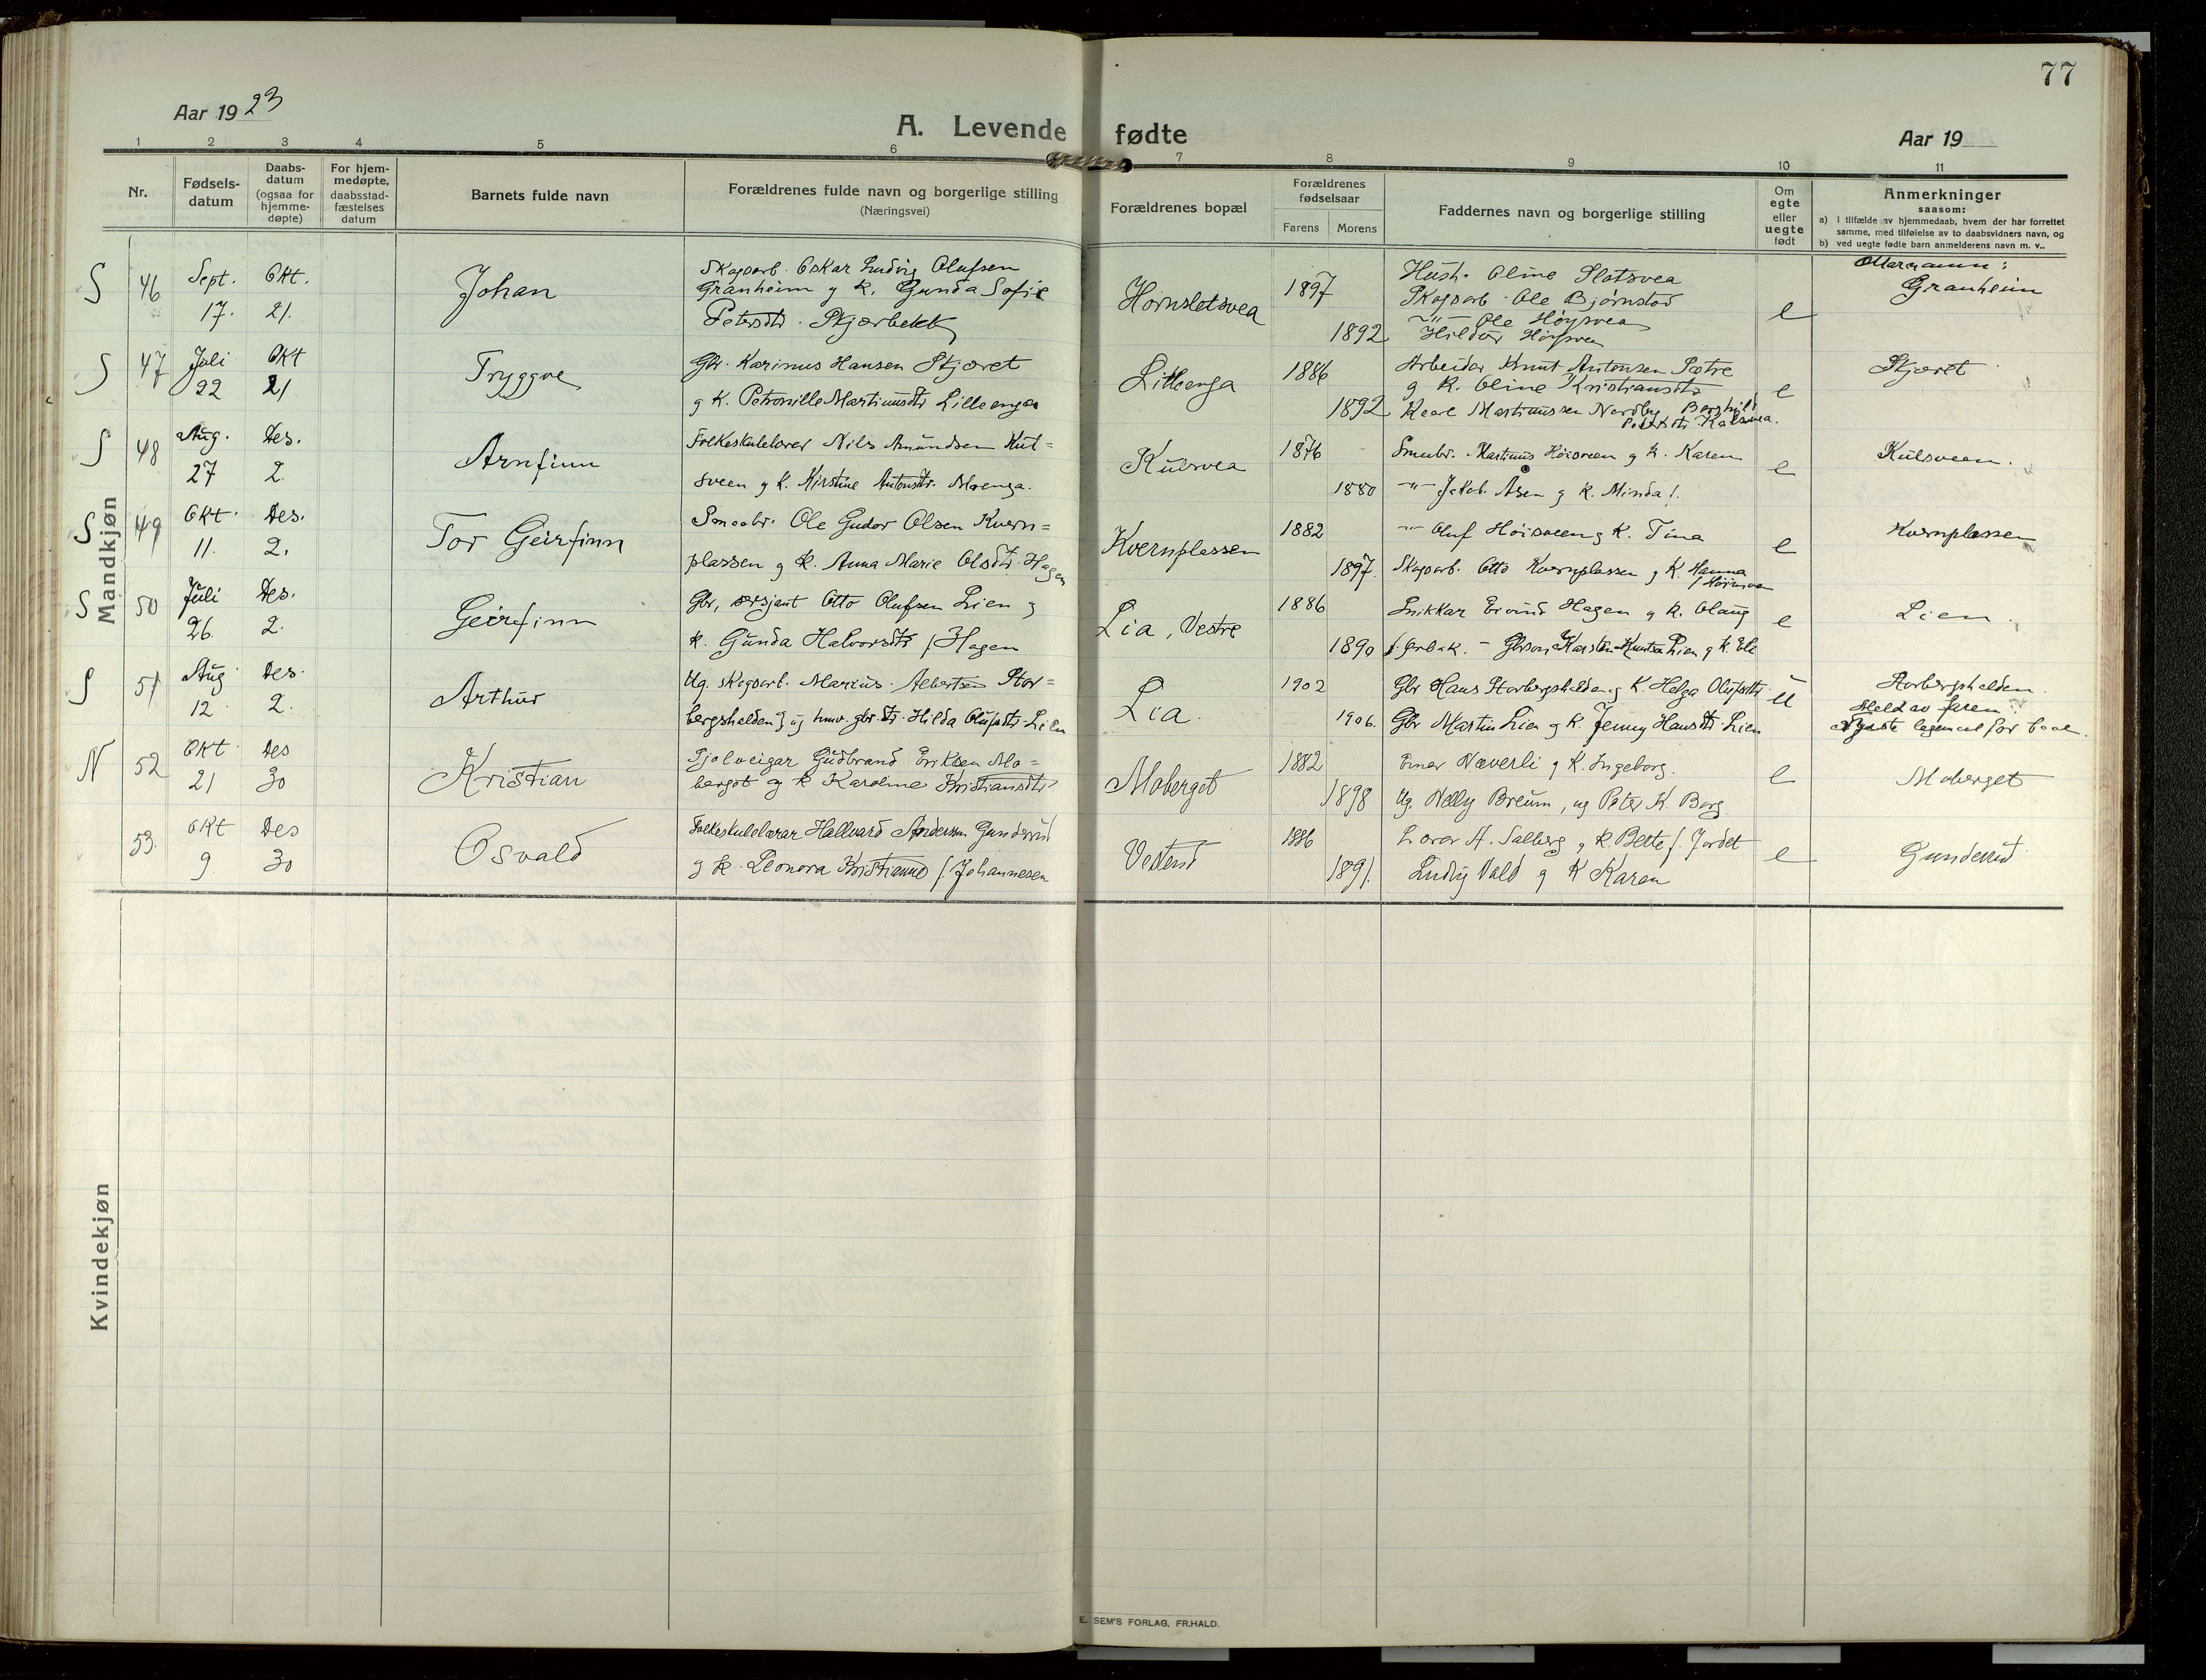 77
Aar 1923
A. Levende fødte
Aar 19
1 2 3 4 5 6 7 8 9 10 11
Nr.
Fødsels-
datum
Daabs-
datum
(ogsaa for
hjemme-
døpte)
For hjem-
medøpte,
daabsstad-
fæstelses
datum
Barnets fulde navn
Forældrenes fulde navn og borgerlige stilling
(Næringsvei)
Forældrenes bopæl
Forældrenes
fødselsaar
Farens Morens
Faddernes navn og borgerlige stilling
Om
egte
eller
uegte
født
Anmerkninger
saasom:
a) i tilfælde av hjemmedaab, hvem der har forrettet
samme, med tilføielse av to daabsvidners navn, og
b) ved uegte fødte barn anmelderens navn m. v..
Mandkjøn
S 46 Sept. 17. Okt. 21.
Johan
Skogsarb. Oskar Ludvig Olufsen
Granheim g k. Gunda Sofie
Petersdtr. Skjærbekk
Hornsletsvea
1897
1892
Hush. Oline Slotsvea
Skogsarb. Ole Bjørnstad
-"- Ole Høysvea
Hildur Høysvea
e
Granheim
S 47 Juli 22 Okt 21
Tryggve
Gbr. Karinus Hansen Skjæret
g k. Petronille Martinusdtr Lilleenga
Lilleenga
1886
1892
Arbeider Knut Antonsen Sætre
g k. Oline Kristiansdtr
Karl Martinussen Nordby Borghild
e
Skjæret
S 48 Aug. 27 Des. 2.
Arnfinn
Folkeskulelærer Nils Amundsen Kul=
sveen g k. Kirstine Antonsdtr. Moenga.
Kulsvea
1876
1880
Smubr. Martinus Høisveen g k. Karen
-"- Jakob Åsen g k. Minda
e
Kulsveen.
S 49 Okt. 11. Des. 2.
Tor Geirfinn
Smaabr. Ole Gudor Olsen Kvern=
plassen g k. Anna Marie Olsdtr. Hagen
Kvernplassen
1882
1897.
-"- Oluf Høisveen g k. Tina
Skogsarb. Otto Kvernplassen g k. Hanna
e
Kvernplassen
S 50 Juli 26. Des. 2.
Geirfinn
Gbr, sersjant Otto Olufsen Lien g
k. Gunda Halvorsdtr f. Hagen
Lia, Vestre
1886
1890
Snikkar Eivind Hagen g k. Olaug
Gbrson Karsten Knutsen Lien g k.
e
Lien.
S 51 Aug. 12 Des. 2.
Arthur
Ug. skogsarb. Marius Albertsen Stor=
bergshelden g ug hmv. gbr.dtr. Hilda Olufsdtr. Lien
Lia.
1902
1906.
Gbr Hans Storbergshelden g k. Helga Olufsdtr.
Gbr Martin Lien g k Jenny Hansdtr. Lien
u
Storbergshelden.
Meld av faren.
N 52 Okt. 21 Des 30
Kristian
Sjølveigar Gudbrand Eriksen Mo=
berget og k Karoline Kristiansdtr
Moberget
1882
1898
Einar Næverli g k. Ingeborg.
Ug. Nelly Breum, ug Peter K. Berg.
e
Moberget
53. Okt 9. Des 30
Osvald
Folkeskulelærar Hallvard Andersen Gunderud
g k. Leonora Kristianne f. Johannesen
Vestend
1886
1891.
Lærer A. Salberg g k. Bette f. Jordet
Ludvig Vald g k Karen
e
Gunderud
Kvindekjøn
E. SEM'S FORLAG, FR.HALD.